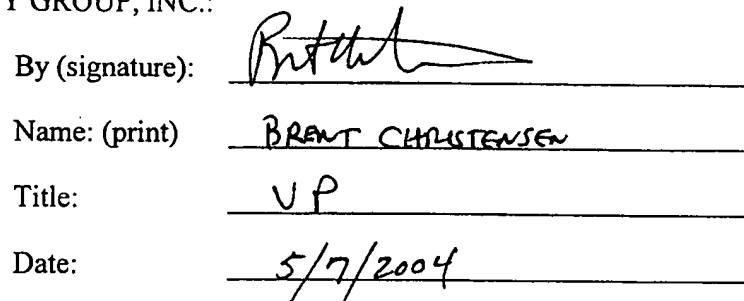 Y GROUP, INC.:
By (signature):
Name: (print) BRENT CHRISTENSEN
Title: VP
Date: 5/7/2004